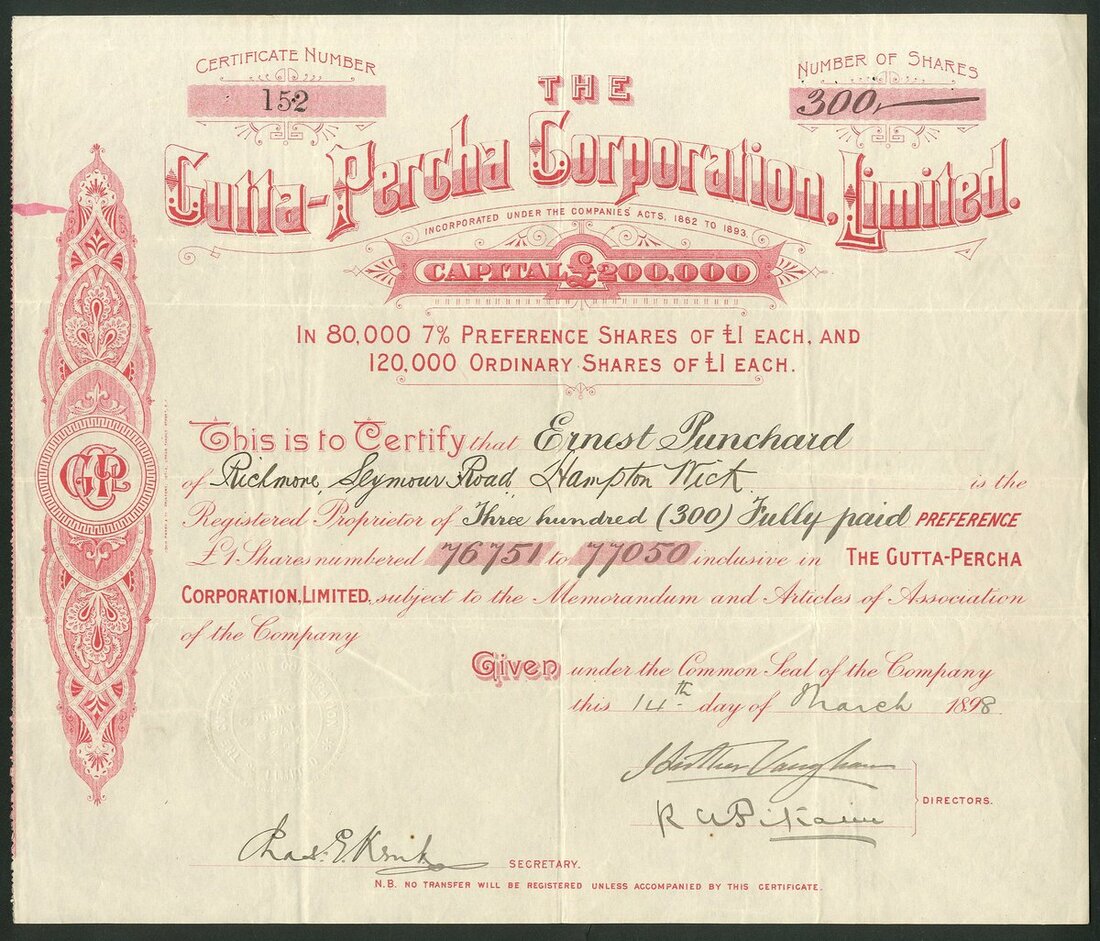 CERTIFICATE NUMBER
152
NUMBER OF SHARES
300,
THE
Gutta-Percha Corporation, Limited.
INCORPORATED UNDER THE COMPANIES ACTS, 1862 TO 1893.
CAPITAL £200.000
IN 80,000 7% PREFERENCE SHARES OF £1 EACH, AND
120,000 ORDINARY SHARES OF £1 EACH.
This is to Certify that Ernest Punchard
of Richmore, Seymour Road Hampton Wick is the
Registered Proprietor of Three hundred (300) Fully paid PREFERENCE
£1 Shares numbered 76751 to 77050 inclusive in THE GUTTA-PERCHA
CORPORATION, LIMITED, subject to the Memorandum and Articles of Association
of the Company
Given under the Common Seal of the Company
this 14th day of March 1898
Vaughan
DIRECTORS.
Chas. E.
SECRETARY.
N.B. NO TRANSFER WILL BE REGISTERED UNLESS ACCOMPANIED BY THIS CERTIFICATE.